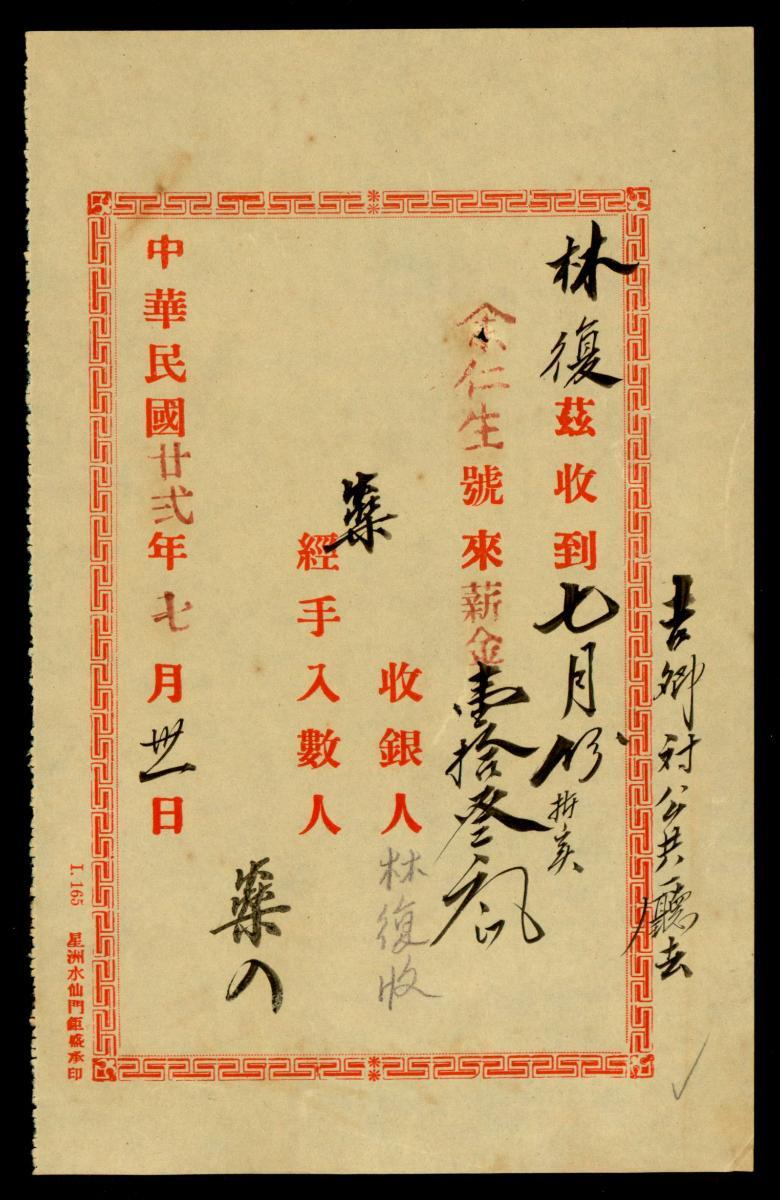 吉鄉対公共廳去
林復茲收到七月份折实
余仁生號來薪金壹拾叁元
收銀人林復收
經手入數人
中華民國廿弍年七月卅一日
I. 165 星洲水仙門鉅盛承印